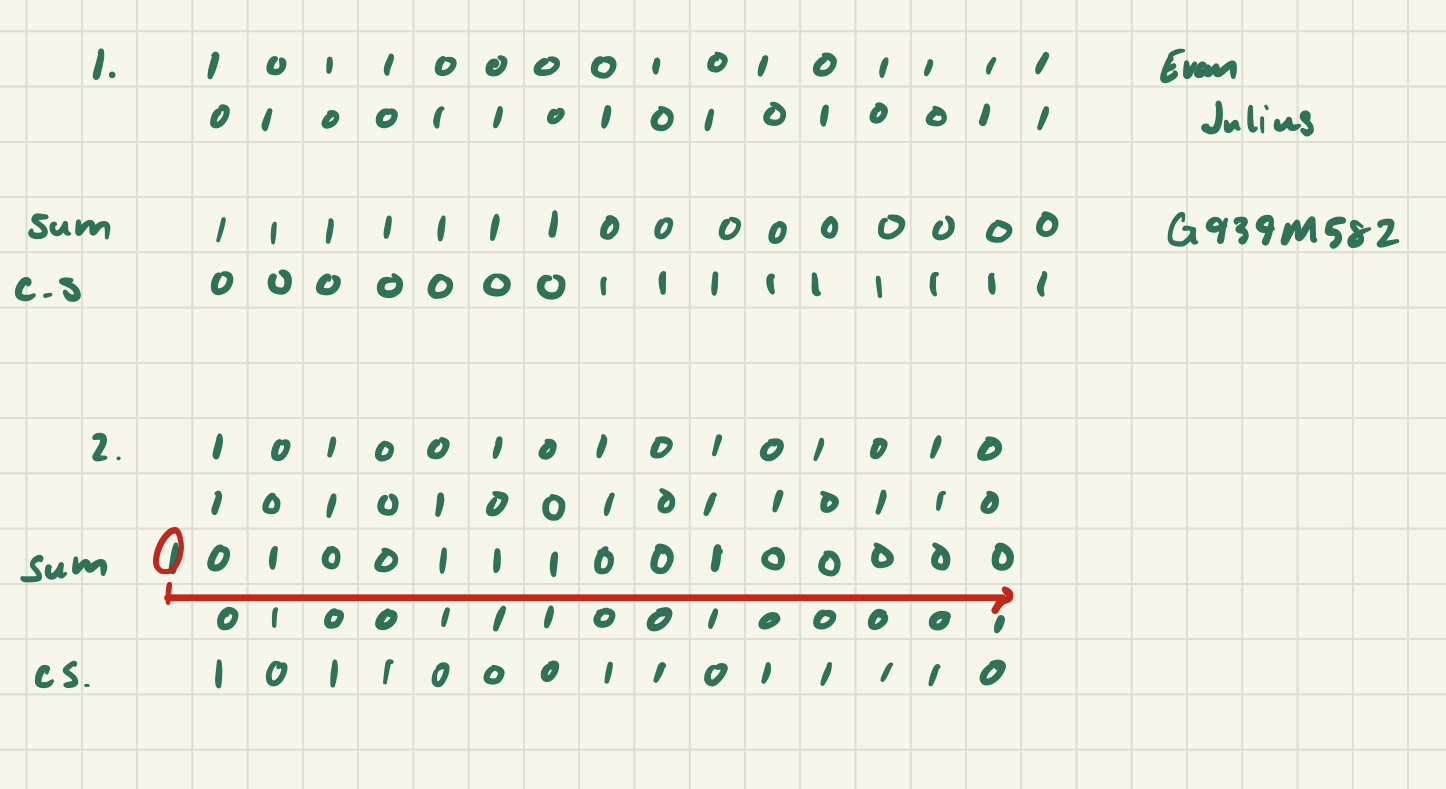 1. 1 0 1 1 0 0 0 0 1 0 1 0 1 1 1 1 Evan
0 1 0 0 1 1 0 1 0 1 0 1 0 0 1 1 Julius
Sum 1 1 1 1 1 1 1 0 0 0 0 0 0 0 0 0 G939M582
c.s 0 0 0 0 0 0 0 1 1 1 1 1 1 1 1 1
2. 1 0 1 0 0 1 0 1 0 1 0 1 0 1 0
1 0 1 0 1 0 0 1 0 1 1 0 1 1 0
sum 1 0 1 0 0 1 1 1 0 0 1 0 0 0 0 0
0 1 0 0 1 1 1 0 0 1 0 0 0 0 1
cs. 1 0 1 1 0 0 0 1 1 0 1 1 1 1 0